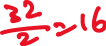 32/2 = 16